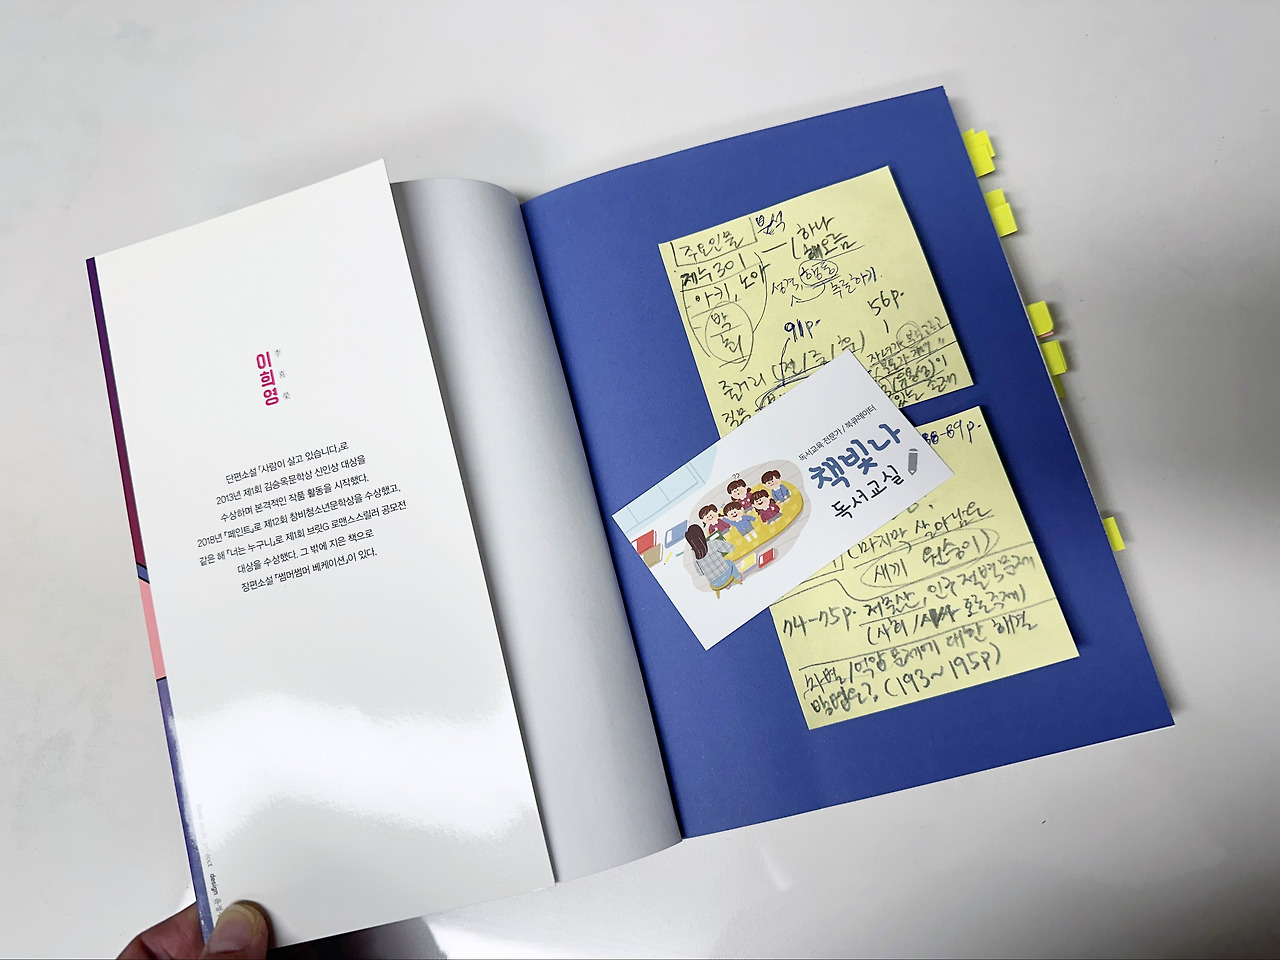 이희영
李喜榮
단편소설 「사람이 살고 있습니다」로
2013년 제1회 김승옥문학상 신인상 대상을
수상하며 본격적인 작품 활동을 시작했다.
2018년 『페인트』로 제12회 창비청소년문학상을 수상했고,
같은 해 『너는 누구니』로 제1회 브릿G 로맨스스릴러 공모전
대상을 수상했다. 그 밖에 지은 책으로
장편소설 『썸머썸머 베케이션』이 있다.
design
주요인물 분석
제누301 하나
해오름
아키, 노아
성격, 행동
추론하기.
박
최
91p.
56p.
줄거리
88-89p.
독서교육 전문가 / 북큐레이터
책빛나
독서교실
(마지막 살아남은
새끼 원숭이)
74-75p. 저출산, 인구절벽문제
(사회/시사 토론주제)
차별/억압 문제에 대한 해결
방법은? (193~195p)